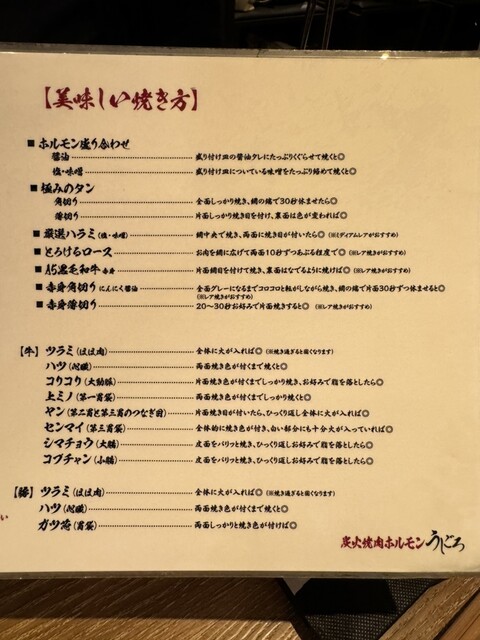 【美味しい焼き方】
■ ホルモン盛り合わせ
醤油 盛り付け皿の醤油タレにたっぷりくぐらせて焼くと◎
塩・味噌 盛り付け皿についている味噌をたっぷり絡めて焼くと◎
■ 極みのタン
角切り 全面しっかり焼き、網の端で30秒休ませたら◎
薄切り 片面しっかり焼き目を付け、裏面は色が変われば◎
■ 厳選ハラミ(塩・味噌) 網中央で焼き、両面に焼き目が付いたら◎ (※ミディアムレアがおすすめ)
■ とろけるロース お肉を網に広げて両面10秒ずつあぶる程度で◎ (※レア焼きがおすすめ)
■ A5黒毛和牛 赤身 片面網目を付けて焼き、裏面はなでるように焼けば◎ (※レア焼きがおすすめ)
■ 赤身角切り にんにく醤油 全面グレーになるまでコロコロと転がしながら焼き、網の端で片面30秒ずつ休ませると◎
(※レア焼きがおすすめ)
■ 赤身薄切り 20〜30秒お好みで片面焼きすると◎ (※レア焼きがおすすめ)
【牛】 ツラミ(ほほ肉) 全体に火が入れば◎ (※焼き過ぎると固くなります)
ハツ(心臓) 両面焼き色が付くまで焼くと◎
コリコリ(大動脈) 片面焼き色が付くまでしっかり焼き、お好みで脂を落としたら◎
上ミノ(第一胃袋) 両面焼き色が付くまでしっかり焼くと◎
ヤン(第二胃と第三胃のつなぎ目) 片面焼き目が付いたら、ひっくり返し全体に火が入れば◎
センマイ(第三胃袋) 全体的に焼き色が付き、白い部分にも十分火が入っていれば◎
シマチョウ(大腸) 皮面をパリッと焼き、ひっくり返しお好みで脂を落としたら◎
コプチャン(小腸) 皮面をパリッと焼き、ひっくり返しお好みで脂を落としたら◎
【豚】 ツラミ(ほほ肉) 全体に火が入れば◎ (※焼き過ぎると固くなります)
ハツ(心臓) 両面焼き色が付くまで焼くと◎
ガツ芯(胃袋) 両面しっかりと焼き色が付けば◎
い
炭火焼肉ホルモン うしごろ